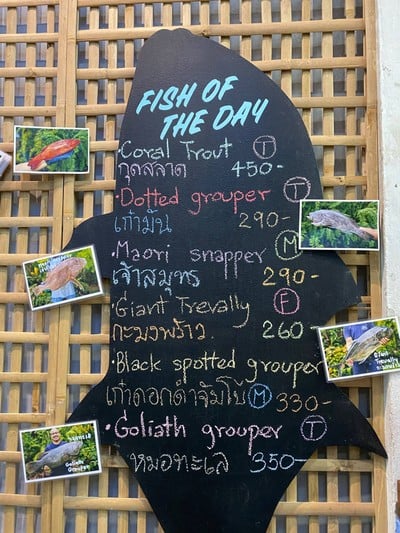 FISH OF
THE DAY
• Coral Trout Ⓣ
กุดสลาด 450-
• Dotted grouper Ⓣ
เก๋ามัน 290-
• Maori snapper Ⓜ
เจ้าสมุทร 290-
• Giant Trevally Ⓕ
กะมงพร้าว. 260
• Black spotted grouper
เก๋าดอกดำจัมโบ้ Ⓜ 330-
• Goliath grouper Ⓣ
หมอทะเล 350-
Giant
Trevally
Goliath
Grouper